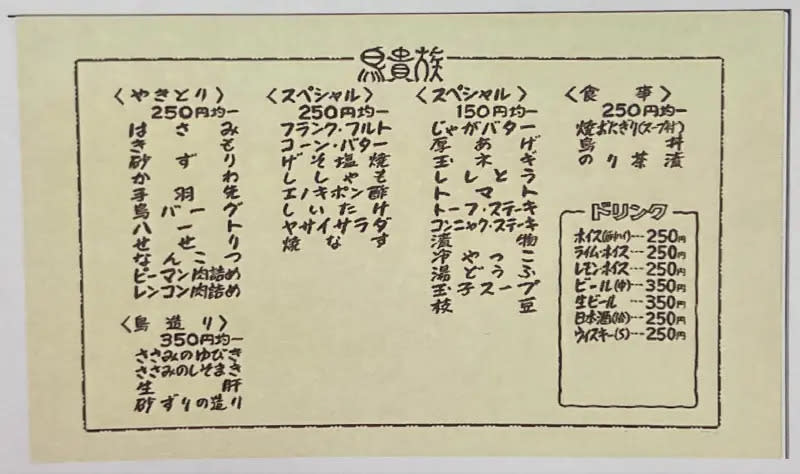 鳥貴族
〈やきとり〉
250円均一
はさみ
きも
砂ずり
かわ
手羽先
鳥バーグ
ハート
せせり
なんこつ
ピーマン肉詰め
レンコン肉詰め
〈鳥造り〉
350円均一
ささみのゆびき
ささみのしそまき
生肝
砂ずりの造り
〈スペシャル〉
250円均一
フランク・フルト
コーン・バター
げそ塩焼
ししゃも
エノキポン酢
しいたけ
ヤサイサラダ
焼なす
〈スペシャル〉
150円均一
じゃがバター
厚あげ
玉ネギ
ししとう
トマト
トーフ・ステーキ
コンニャク・ステーキ
漬物
冷やっこ
湯どうふ
玉子スープ
枝豆
〈食事〉
250円均一
焼おにぎり(スープ付)
鳥丼
のり茶漬
ドリンク
ホイス(酎ハイ)…250円
ライム・ホイス…250円
レモン・ホイス…250円
ビール(中)…350円
生ビール…350円
日本酒(冷)…250円
ウイスキー(S)…250円